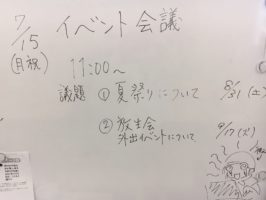 7/15
(月祝)
イベント会議
11:00～
議題 ① 夏祭りについて 8/31(土)
② 放生会 9/17(火)
外出イベントについて